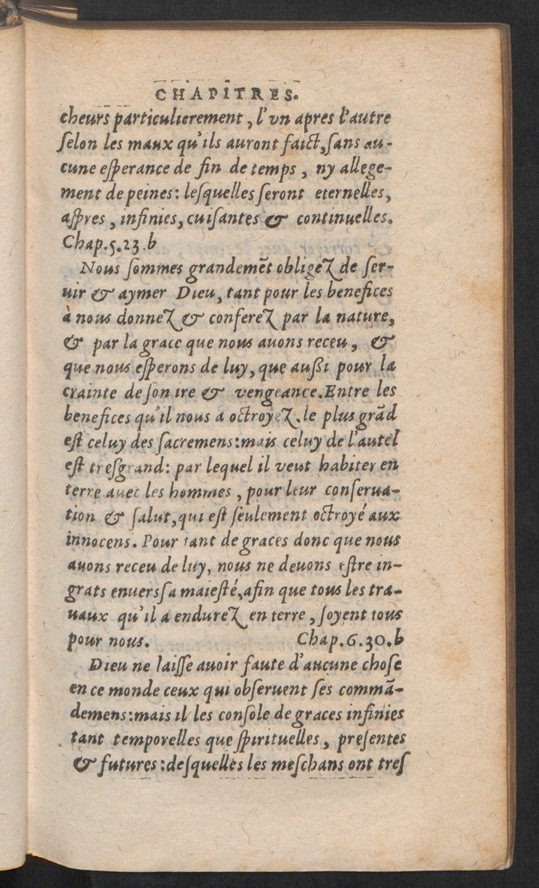 CHAPITRES.
cheurs particulierement, l'vn apres l'autre
ſelon les maux qu'ils auront faict, ſans au-
cune eſperance de fin de temps, ny allege-
ment de peines: leſquelles ſeront eternelles,
aſpres, infinies, cuiſantes & continuelles.
Chap.5.23.b
Nous ſommes grandemẽt obligez de ſer-
uir & aymer Dieu, tant pour les benefices
à nous donnez & conferez par la nature,
& par la grace que nous auons receu, &
que nous eſperons de luy, que auſsi pour la
crainte de ſon ire & vengeance. Entre les
benefices qu'il nous a octroyez, le plus grãd
eſt celuy des ſacremens: mais celuy de l'autel
eſt treſgrand: par lequel il veut habiter en
terre auec les hommes, pour leur conſerua-
tion & ſalut, qui eſt ſeulement octroyé aux
innocens. Pour tant de graces donc que nous
auons receu de luy, nous ne deuons eſtre in-
grats enuers ſa maieſté, afin que tous les tra-
uaux qu'il a endurez en terre, ſoyent tous
pour nous. Chap.6.30.b
Dieu ne laiſſe auoir faute d'aucune choſe
en ce monde ceux qui obſeruent ſes commã-
demens: mais il les conſole de graces infinies
tant temporelles que ſpirituelles, preſentes
& futures: deſquelles les meſchans ont treſ